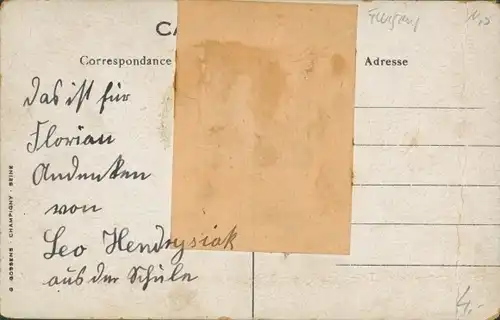 CA
Correspondance
Adresse
Das ist für
Florian
Andenken
von
Leo Hendrysiak
aus der Schule
G. GOSSENS - CHAMPIGNY - SEINE
4.-